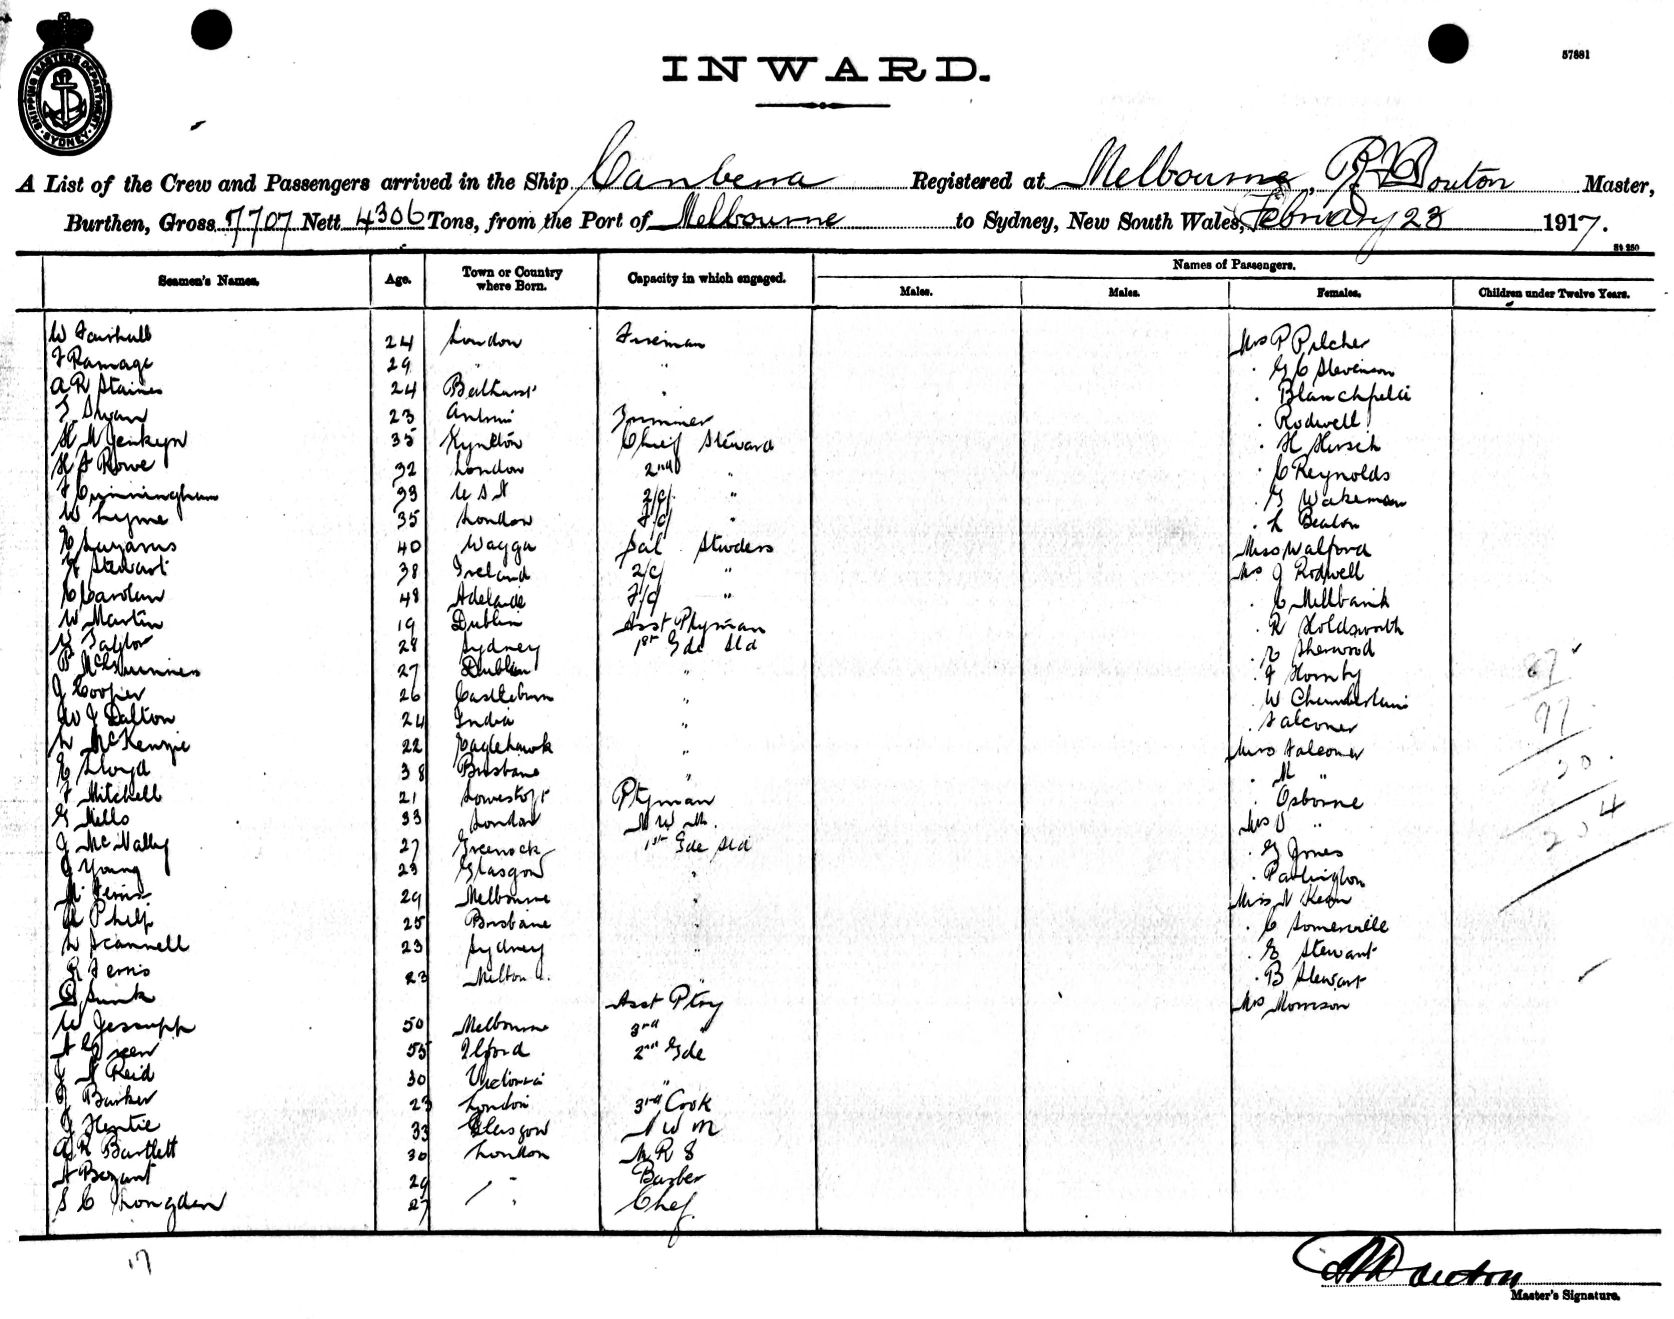 SHIPPING MASTERS DEPARTMENT
SYDNEY
57881
INWARD.
A List of the Crew and Passengers arrived in the Ship Canberra Registered at Melbourne, Master,
Burthen, Gross 7707 Nett 4306 Tons, from the Port of Melbourne to Sydney, New South Wales, February 23 1917.
Seamen's Names. Age. Town or Country where Born. Capacity in which engaged. Names of Passengers.
Males. Males. Females. Children under Twelve Years.
W Fairhall 24 London Fireman Mrs P Pilcher
F Ramage 29 " " " G C Stevenson
A R Staines 24 Bathurst " "
F Swan 23 Antrim Trimmer " Rodwell
H M Jenkyn 35 Kyneton Chief Steward " H Hirsch
H S Rowe 32 London 2nd " " C Reynolds
F Cunningham 33 U S A 2/c/ " " G Wakeman
W Lyme 35 London F/c/ " " L Beaton
40 Wagga Sal Stwdess Miss Walford
Stewart 38 Ireland 2/c/ " Mrs J Rodwell
48 Adelaide F/c/ " " C Millbank
W Martin 19 Dublin Asst Ptyman " R Holdsworth
G Taylor 28 Sydney 1st Gde Std " Sherwood
P McGuinness 27 Dublin " " F Hornby
J Cooper 26 Castleburn " " W Chamberlain
W J Dalton 24 India " " Falconer
L McKenzie 22 Eaglehawk " Miss Falconer
E Lloyd 38 Brisbane " " M "
F Mitchell 21 Lowestoft Ptyman " Osborne
G Mills 33 London N W M. Mrs O "
J McNally 27 Greenock 1st Gde Std " G Jones
J Young 23 Glasgow " " Partington
M Ferris 29 Melbourne " Miss N Kean
Philp 25 Brisbane " " C Somerville
L Scannell 23 Sydney " " E Stewart
R Ferris 23 Milton " " B Stewart
Asst Ptry Mrs Morrison
W Jessupp 50 Melbourne 3rd "
A Green 55 Ilford 2nd Gde
J N Reid 30 Victoria "
J Barker 23 London 3rd Cook
J Hentie 33 Glasgow N W M
A R Bartlett 30 London M R S
A Bryant 29 " Barber
S C Longden 27 " Chef.
87
97
30
204
17
Master's Signature.